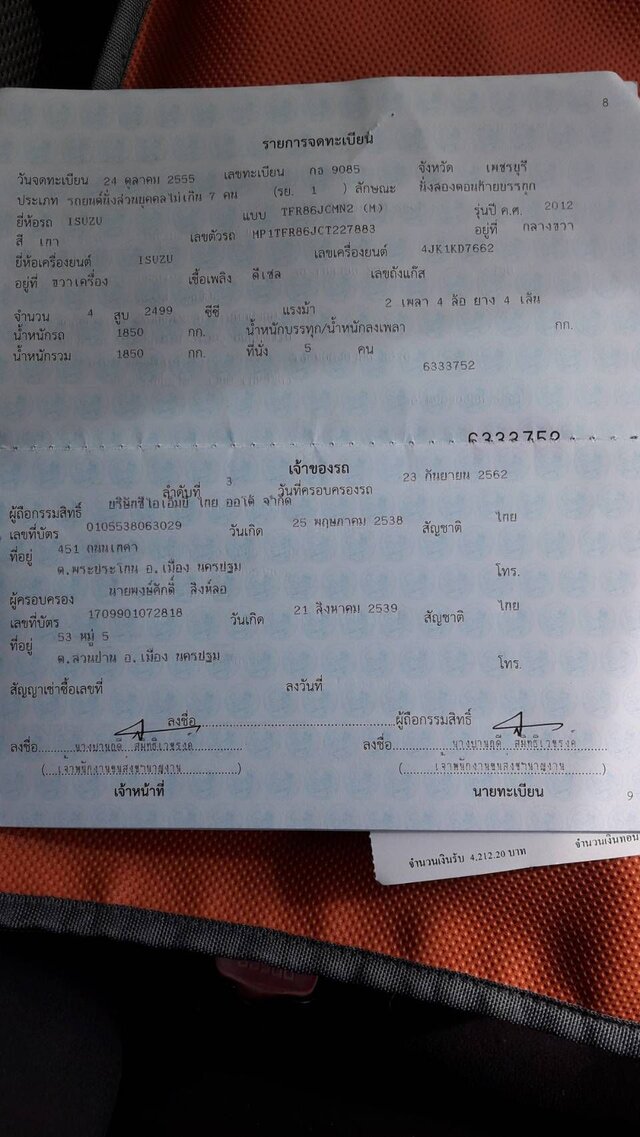 8
รายการจดทะเบียน
วันจดทะเบียน 24 ตุลาคม 2555 เลขทะเบียน กอ 9085 จังหวัด เพชรบุรี
ประเภท รถยนต์นั่งส่วนบุคคลไม่เกิน 7 คน (รย. 1 ) ลักษณะ นั่งสองตอนท้ายบรรทุก
ยี่ห้อรถ ISUZU แบบ TFR86JCMN2 (M) รุ่นปี ค.ศ. 2012
สี เทา เลขตัวรถ MP1TFR86JCT227883 อยู่ที่ กลางขวา
ยี่ห้อเครื่องยนต์ ISUZU เลขเครื่องยนต์ 4JK1KD7662
อยู่ที่ ขวาเครื่อง เชื้อเพลิง ดีเซล เลขถังแก๊ส
จำนวน 4 สูบ 2499 ซีซี แรงม้า 2 เพลา 4 ล้อ ยาง 4 เส้น
น้ำหนักรถ 1850 กก. น้ำหนักบรรทุก/น้ำหนักลงเพลา กก.
น้ำหนักรวม 1850 กก. ที่นั่ง 5 คน
6333752
6333752
เจ้าของรถ
ลำดับที่ 3 วันที่ครอบครองรถ 23 กันยายน 2562
ผู้ถือกรรมสิทธิ์ บริษัทซีไอเอ็มบี ไทย ออโต้ จำกัด
เลขที่บัตร 0105538063029 วันเกิด 25 พฤษภาคม 2538 สัญชาติ ไทย
ที่อยู่ 451 ถนนเทศา
ต.พระประโทน อ.เมือง นครปฐม โทร.
ผู้ครอบครอง นายพงษ์ศักดิ์ สิงห์ลอ
เลขที่บัตร 1709901072818 วันเกิด 21 สิงหาคม 2539 สัญชาติ ไทย
ที่อยู่ 53 หมู่ 5
ต.สวนป่าน อ.เมือง นครปฐม โทร.
สัญญาเช่าซื้อเลขที่ ลงวันที่
ลงชื่อ ผู้ถือกรรมสิทธิ์
ลงชื่อ ลงชื่อ
(เจ้าพนักงานขนส่งชำนาญงาน) (เจ้าพนักงานขนส่งชำนาญงาน)
เจ้าหน้าที่ นายทะเบียน
9
จำนวนเงินรับ 4,212.20 บาท จำนวนเงินทอน